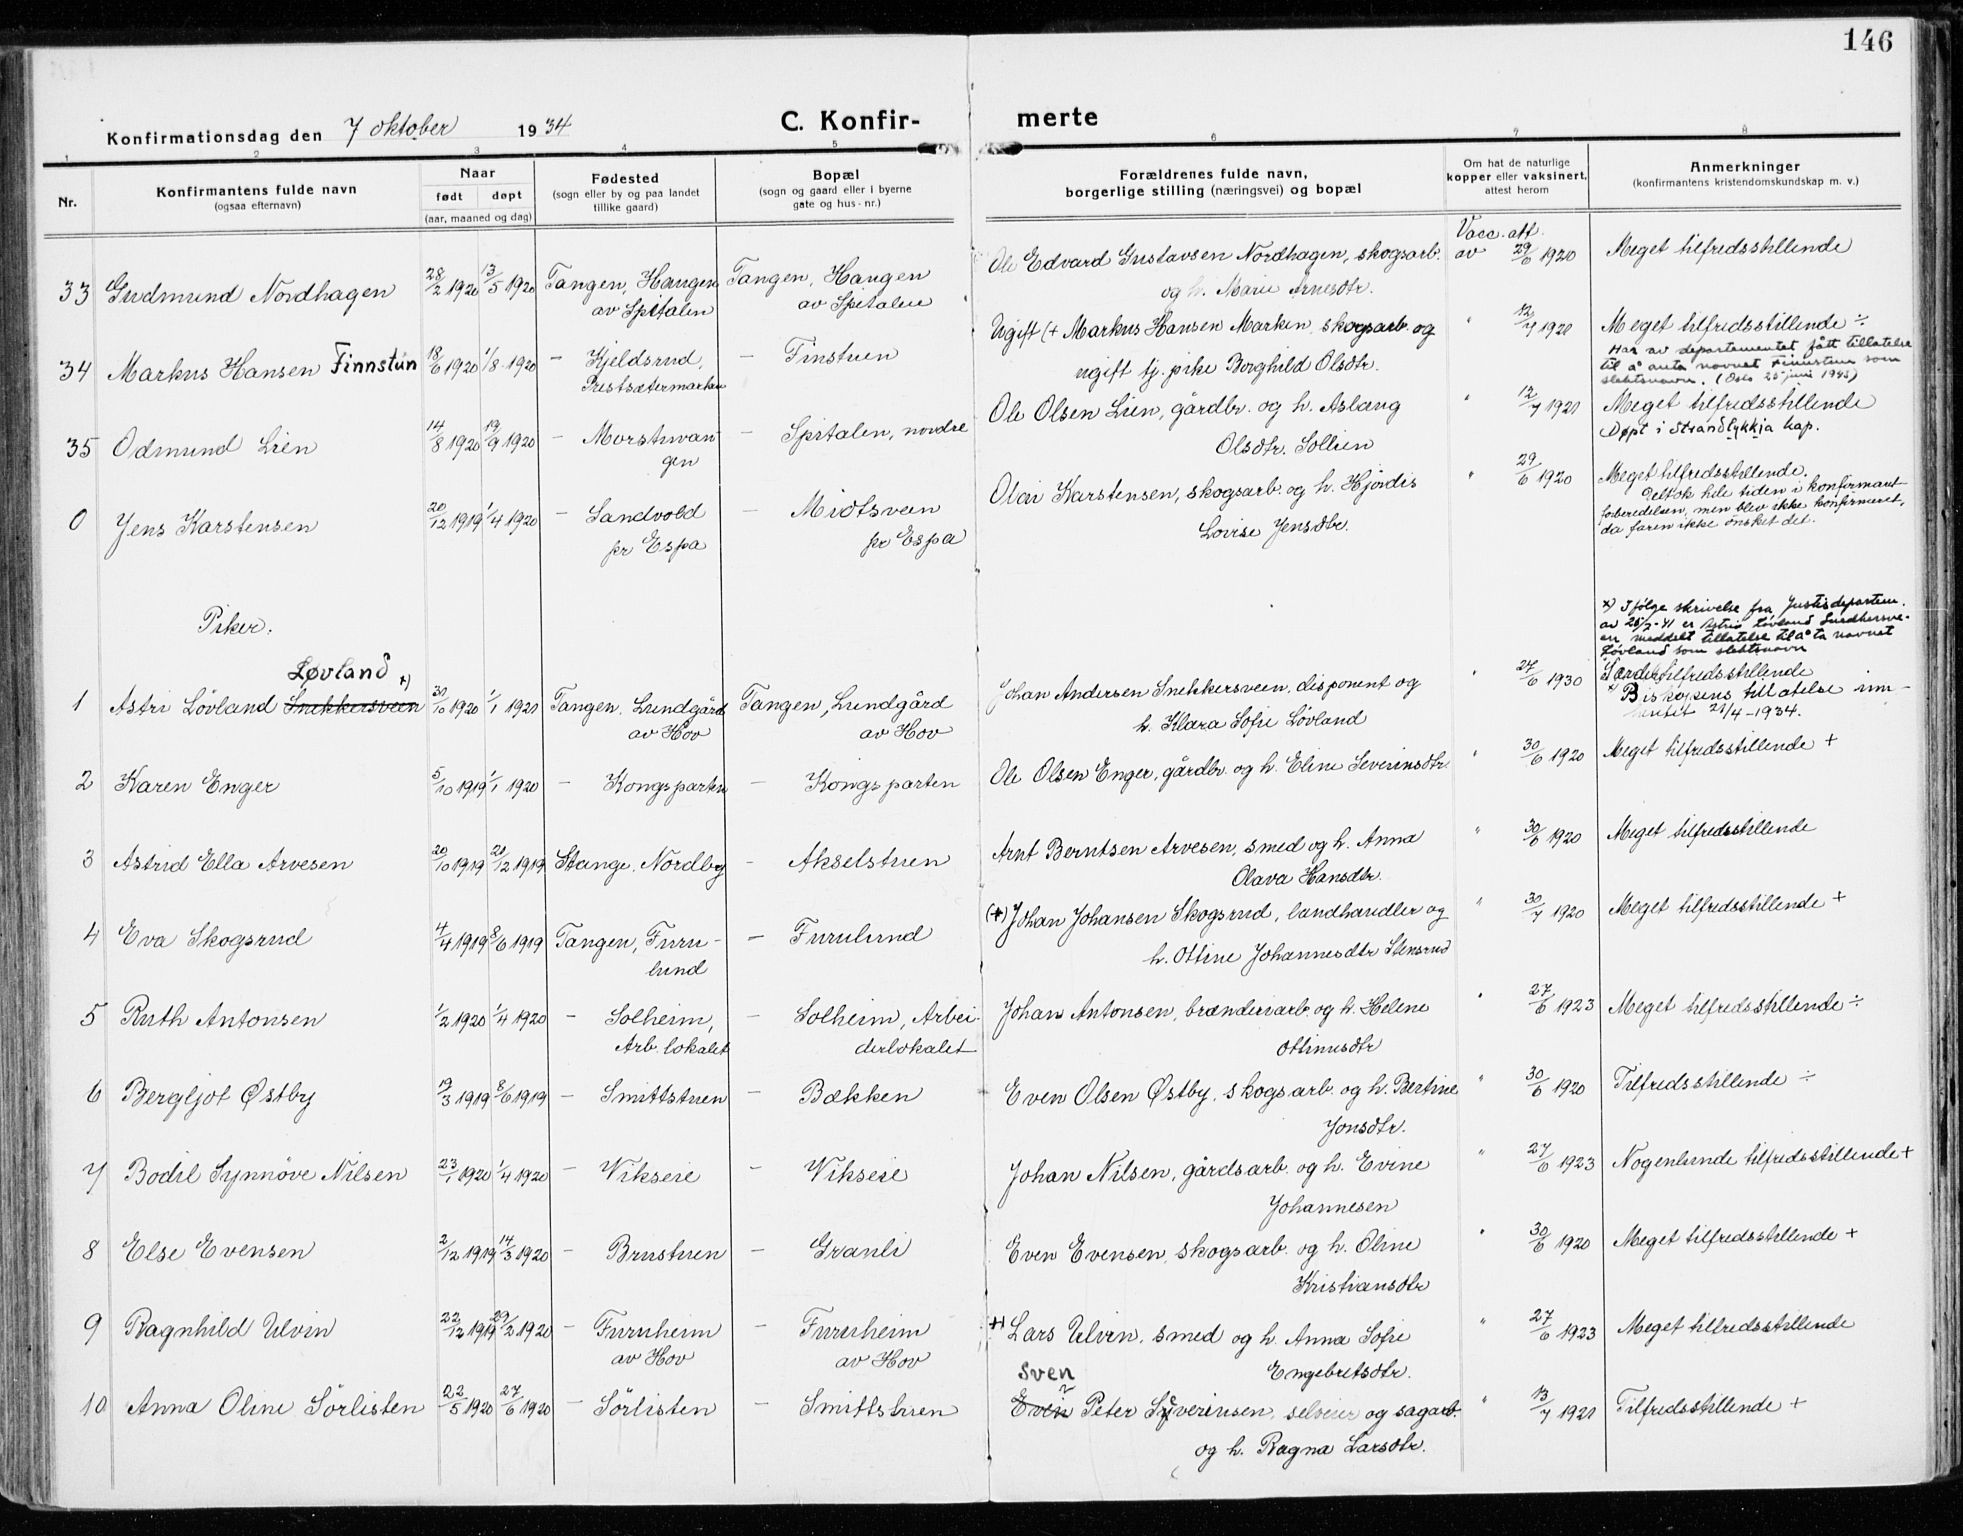 146
Konfirmationsdag den 7 oktober 1934
C. Konfirmerte
1 2 3 4 5 6 7 8
Nr.
Konfirmantens fulde navn
(ogsaa efternavn)
Naar
født døpt
(aar, maaned og dag)
Fødested
(sogn eller by og paa landet
tillike gaard)
Bopæl
(sogn og gaard eller i byerne
gate og hus-nr.)
Forældrenes fulde navn,
borgerlige stilling (næringsvei) og bopæl
Om hat de naturlige
kopper eller vaksinert,
attest herom
Anmerkninger
(konfirmantens kristendomskundskap m. v.)
33 Gudmund Nordhagen 28/2 1920 13/5 1920 Tangen, Haugen Tangen, Haugen Ole Edvard Gustavsen Nordhagen, skogsarb. Vacc. att. av 29/6 1920 Meget tilfredsstillende
av Spitalen av Spitalen og h. Marie Arnesdtr.
34 Markus Hansen Finnstun 18/6 1920 1/8 1920 — Kjeldsrud, — Finstuen Ugift (+ Markus Hansen Marken, skogsarb. og " 12/7 1920 Meget tilfredsstillende ÷
Prestsætermarken ugift tj. pike Borghild Olsdtr.
Har av departementet fått tillatelse
til å anta navnet Finnstun som
slektsnavn. (Oslo 25 juni 1945)
35 Odmund Lien 14/8 1920 19/9 1920 — Morstuvan- — Spitalen, nordre Ole Olsen Lien, gårdbr. og h. Aslaug " 12/7 1921 Meget tilfredsstillende
gen Olsdtr. Sollien Døpt i Strandlykkja kap.
0 Jens Karstensen 20/12 1919 1/4 1920 — Sandvold — Midtsveen Olav Karstensen, skogsarb. og h. Hjørdis " 29/6 1920 Meget tilfredsstillende.
pr Espa pr Espa Lovise Jensdtr.
Deltok hele tiden i konfirmant
forberedelsen, men blev ikke konfirmeret,
da faren ikke ønsket det.
Piker.
x) Ifølge skrivelse fra Justisdepartem.
av 25/2-41 er Astrid Løvland Snekkersve-
en meddelt tillatelse til å ta navnet
Løvland som slektsnavn
Løvland x)
1 Astri Lövland Snekkersveen 30/10 1920 1/1 1921 Tangen, Lundgård Tangen, Lundgård Johan Andersen Snekkersveen, disponent og " 27/6 1930 Særdeles tilfredsstillende
av Hov av Hov h. Klara Sofie Lövland
Biskopens tillatelse inn-
hentet 21/4-1934.
2 Karen Enger 5/10 1919 1/1 1920 — Kongsparten — Kongsparten Ole Olsen Enger, gårdbr. og h. Eline Severinsdtr. " 30/6 1920 Meget tilfredsstillende +
3 Astrid Ella Arvesen 20/10 1919 21/12 1919 Stange, Nordby — Akselstuen Arnt Berntsen Arvesen, smed og h. Anna " 30/6 1920 Meget tilfredsstillende
Olava Hansdtr.
4 Eva Skogsrud 4/4 1919 8/6 1919 Tangen, Furu- — Furulund (+) Johan Johansen Skogsrud, landhandler og " 30/7 1920 Meget tilfredsstillende +
lund h. Ottine Johannesdtr Stensrud
5 Ruth Antonsen 1/2 1920 1/4 1920 — Solheim, — Solheim, Arbei- Johan Antonsen, brænderiarb. og h. Helene " 27/6 1923 Meget tilfredsstillende ÷
Arb. lokalet derlokalet Ottinusdtr
6 Bergljot Østby 19/3 1919 8/6 1919 — Smittstuen — Bækken Even Olsen Østby, skogsarb. og h. Bertine " 30/6 1920 Tilfredsstillende ÷
Jonsdtr.
7 Bodil Synnöve Nilsen 23/1 1920 1/4 1920 — Vikseie — Vikseie Johan Nilsen, gårdsarb. og h. Evine " 27/6 1923 Nogenlunde tilfredsstillende +
Johannesen
8 Else Evensen 2/12 1919 14/3 1920 — Brustuen — Granli Even Evensen, skogsarb. og h. Oline " 30/6 1920 Meget tilfredsstillende +
Kristiansdtr
9 Ragnhild Ulvin 22/12 1919 29/2 1920 — Furuheim — Furuheim +) Lars Ulvin, smed og h. Anna Sofie " 27/6 1923 Meget tilfredsstillende
av Hov av Hov Engebretsdtr.
Sven
10 Anna Oline Sörlisten 22/5 1920 27/6 1920 — Sörlisten — Smittstuen Even Peter Syverinsen, selveier og sagarb. " 13/7 1921 Tilfredsstillende +
og h. Ragna Larsdtr.